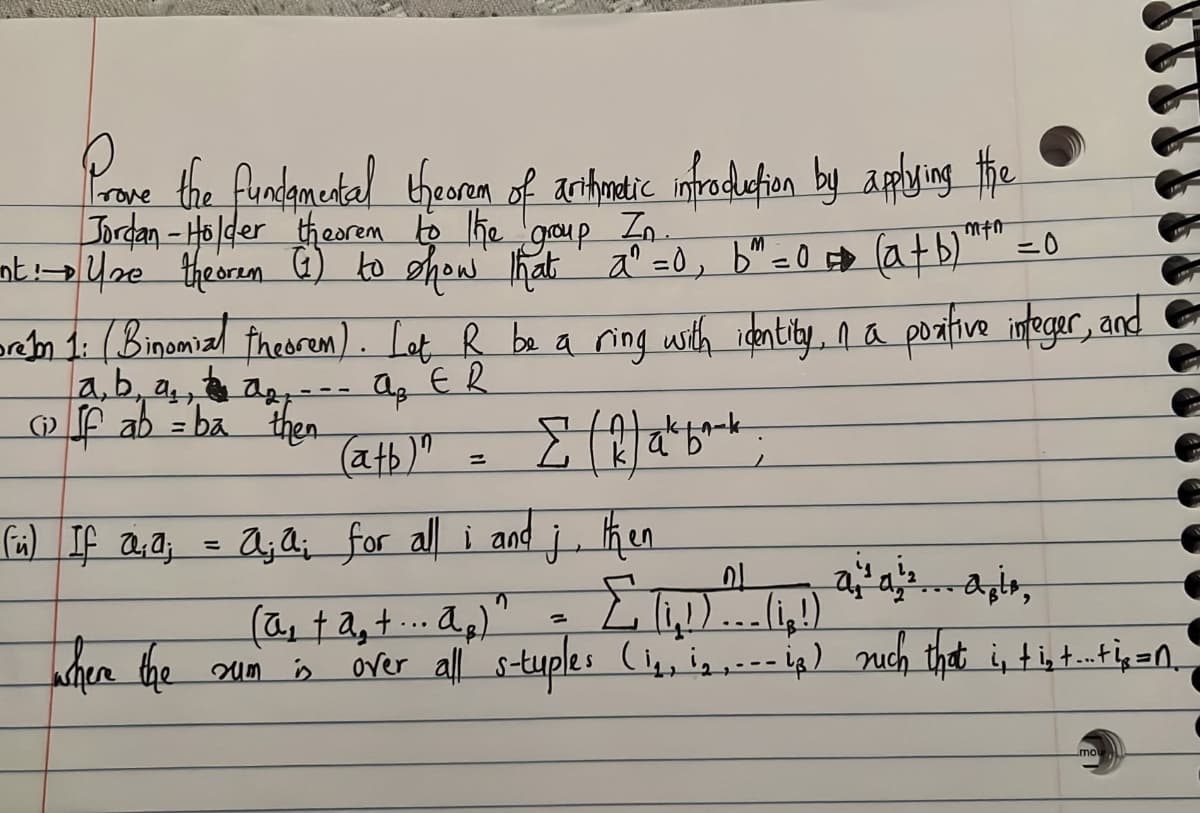 Prove the fundamental theorem of arithmetic introduction by applying the
Jordan-Hölder theorem to the group Zn.
nt:→ Use theorem (1) to show that aⁿ=0, bᵐ=0 ⇒ (a+b)ᵐ⁺ⁿ=0
orem 1: (Binomial theorem). Let R be a ring with identity, n a positive integer, and
a, b, a₁, a₂, --- aₛ ∈ R
(i) If ab = ba then
(a+b)ⁿ = Σ (n k) aᵏbⁿ⁻ᵏ;
(ii) If aᵢaⱼ = aⱼaᵢ for all i and j, then
(a₁ + a₂ + ... aₛ)ⁿ = Σ n!/((i₁!)...(iₛ!)) a₁^i₁ a₂^i₂ ... aₛiₛ,
where the sum is over all s-tuples (i₁, i₂, --- iₛ) such that i₁ + i₂ + ... + iₛ = n.
mo